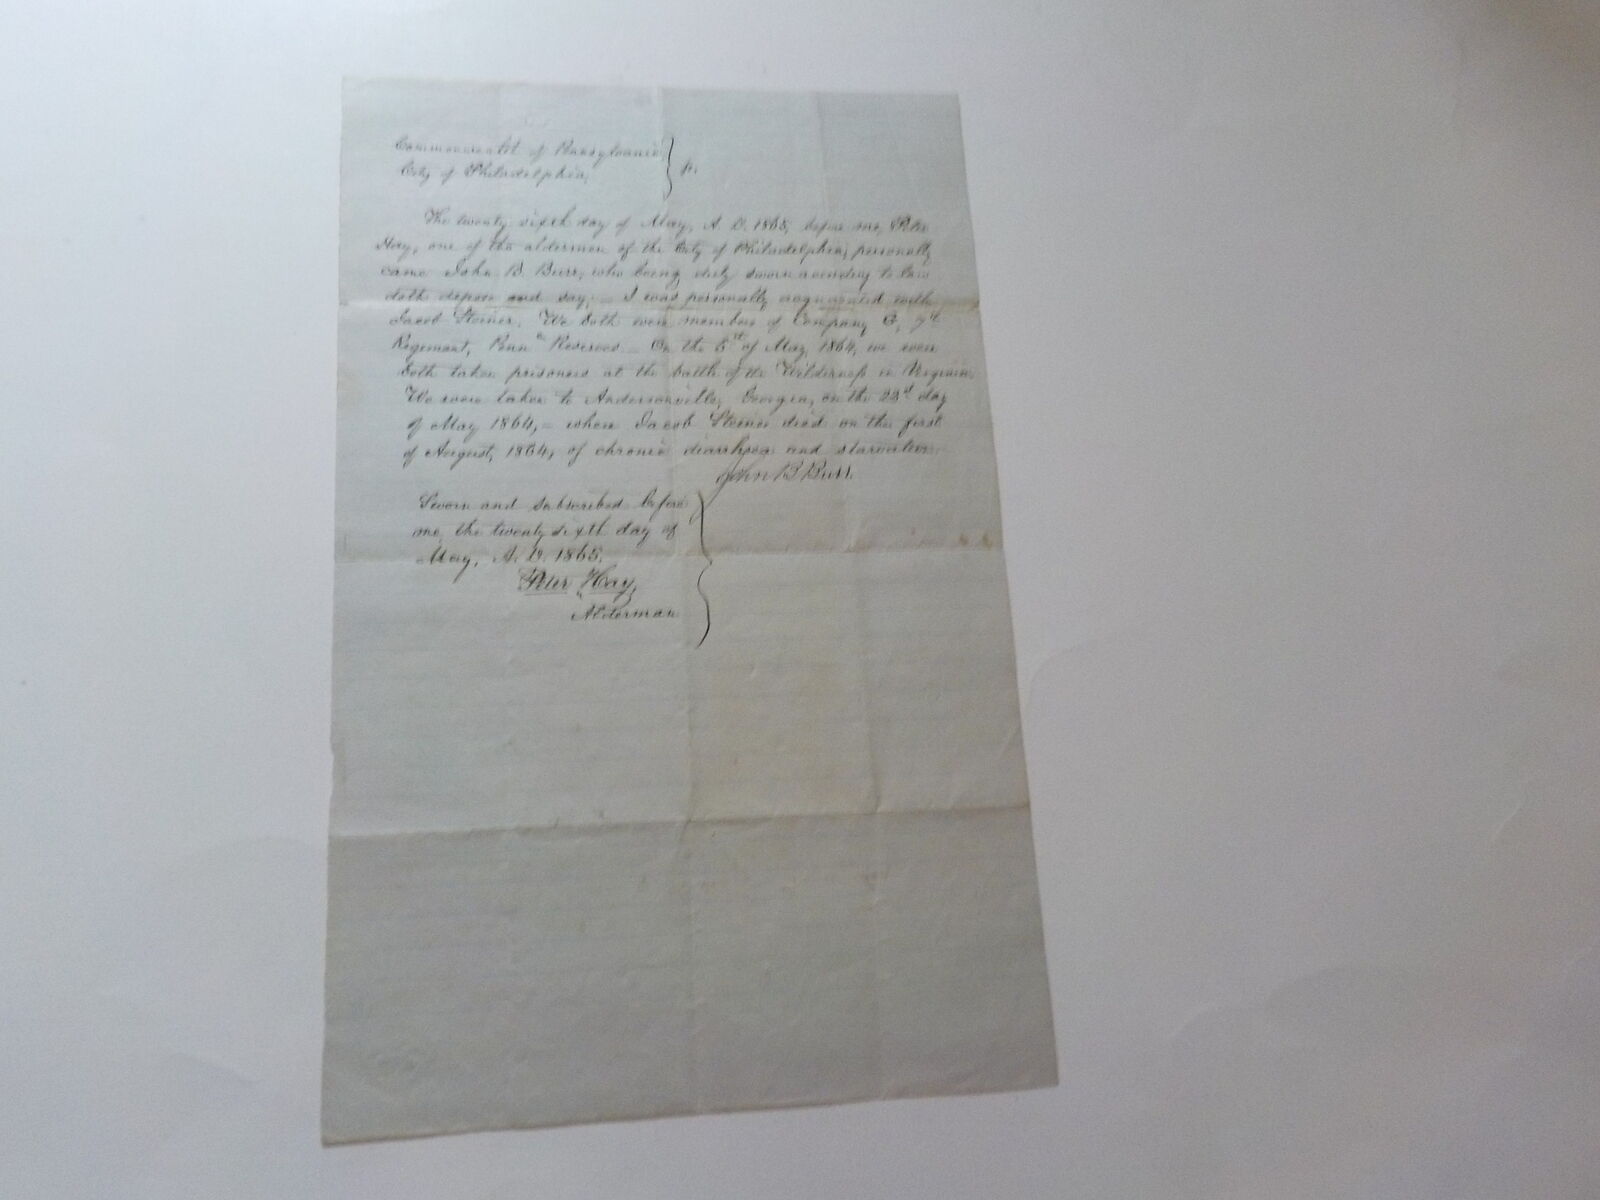 Commonwealth of Pennsylvania
City of Philadelphia,
} ss.
The twenty sixth day of May, A. D. 1865, before me, Peter
Hay, one of the aldermen of the City of Philadelphia, personally
came John B. Burr, who being duly sworn according to law
doth depose and say; – I was personally acquainted with
Jacob Steiner. We both were members of Company G, 7th
Regiment, Penna Reserves – On the 5th of May, 1864, we were
both taken prisoners at the battle of the Wilderness in Virginia.
We were taken to Andersonville, Georgia, on the 23d day
of May 1864, – where Jacob Steiner died on the first
of August, 1864, of chronic diarrhoea and starvation.
John B Burr.
Sworn and subscribed before
me, the twenty sixth day of
May, A. D. 1865.
Peter Hay,
Alderman